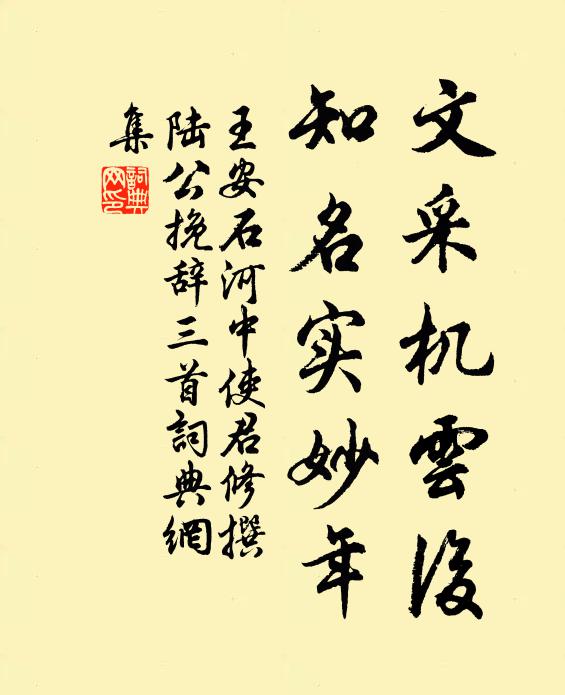 文采机雲後
知名实妙年
王安石河中使君修撰
陆公挽辞三首詞典網
集
詞典
网印